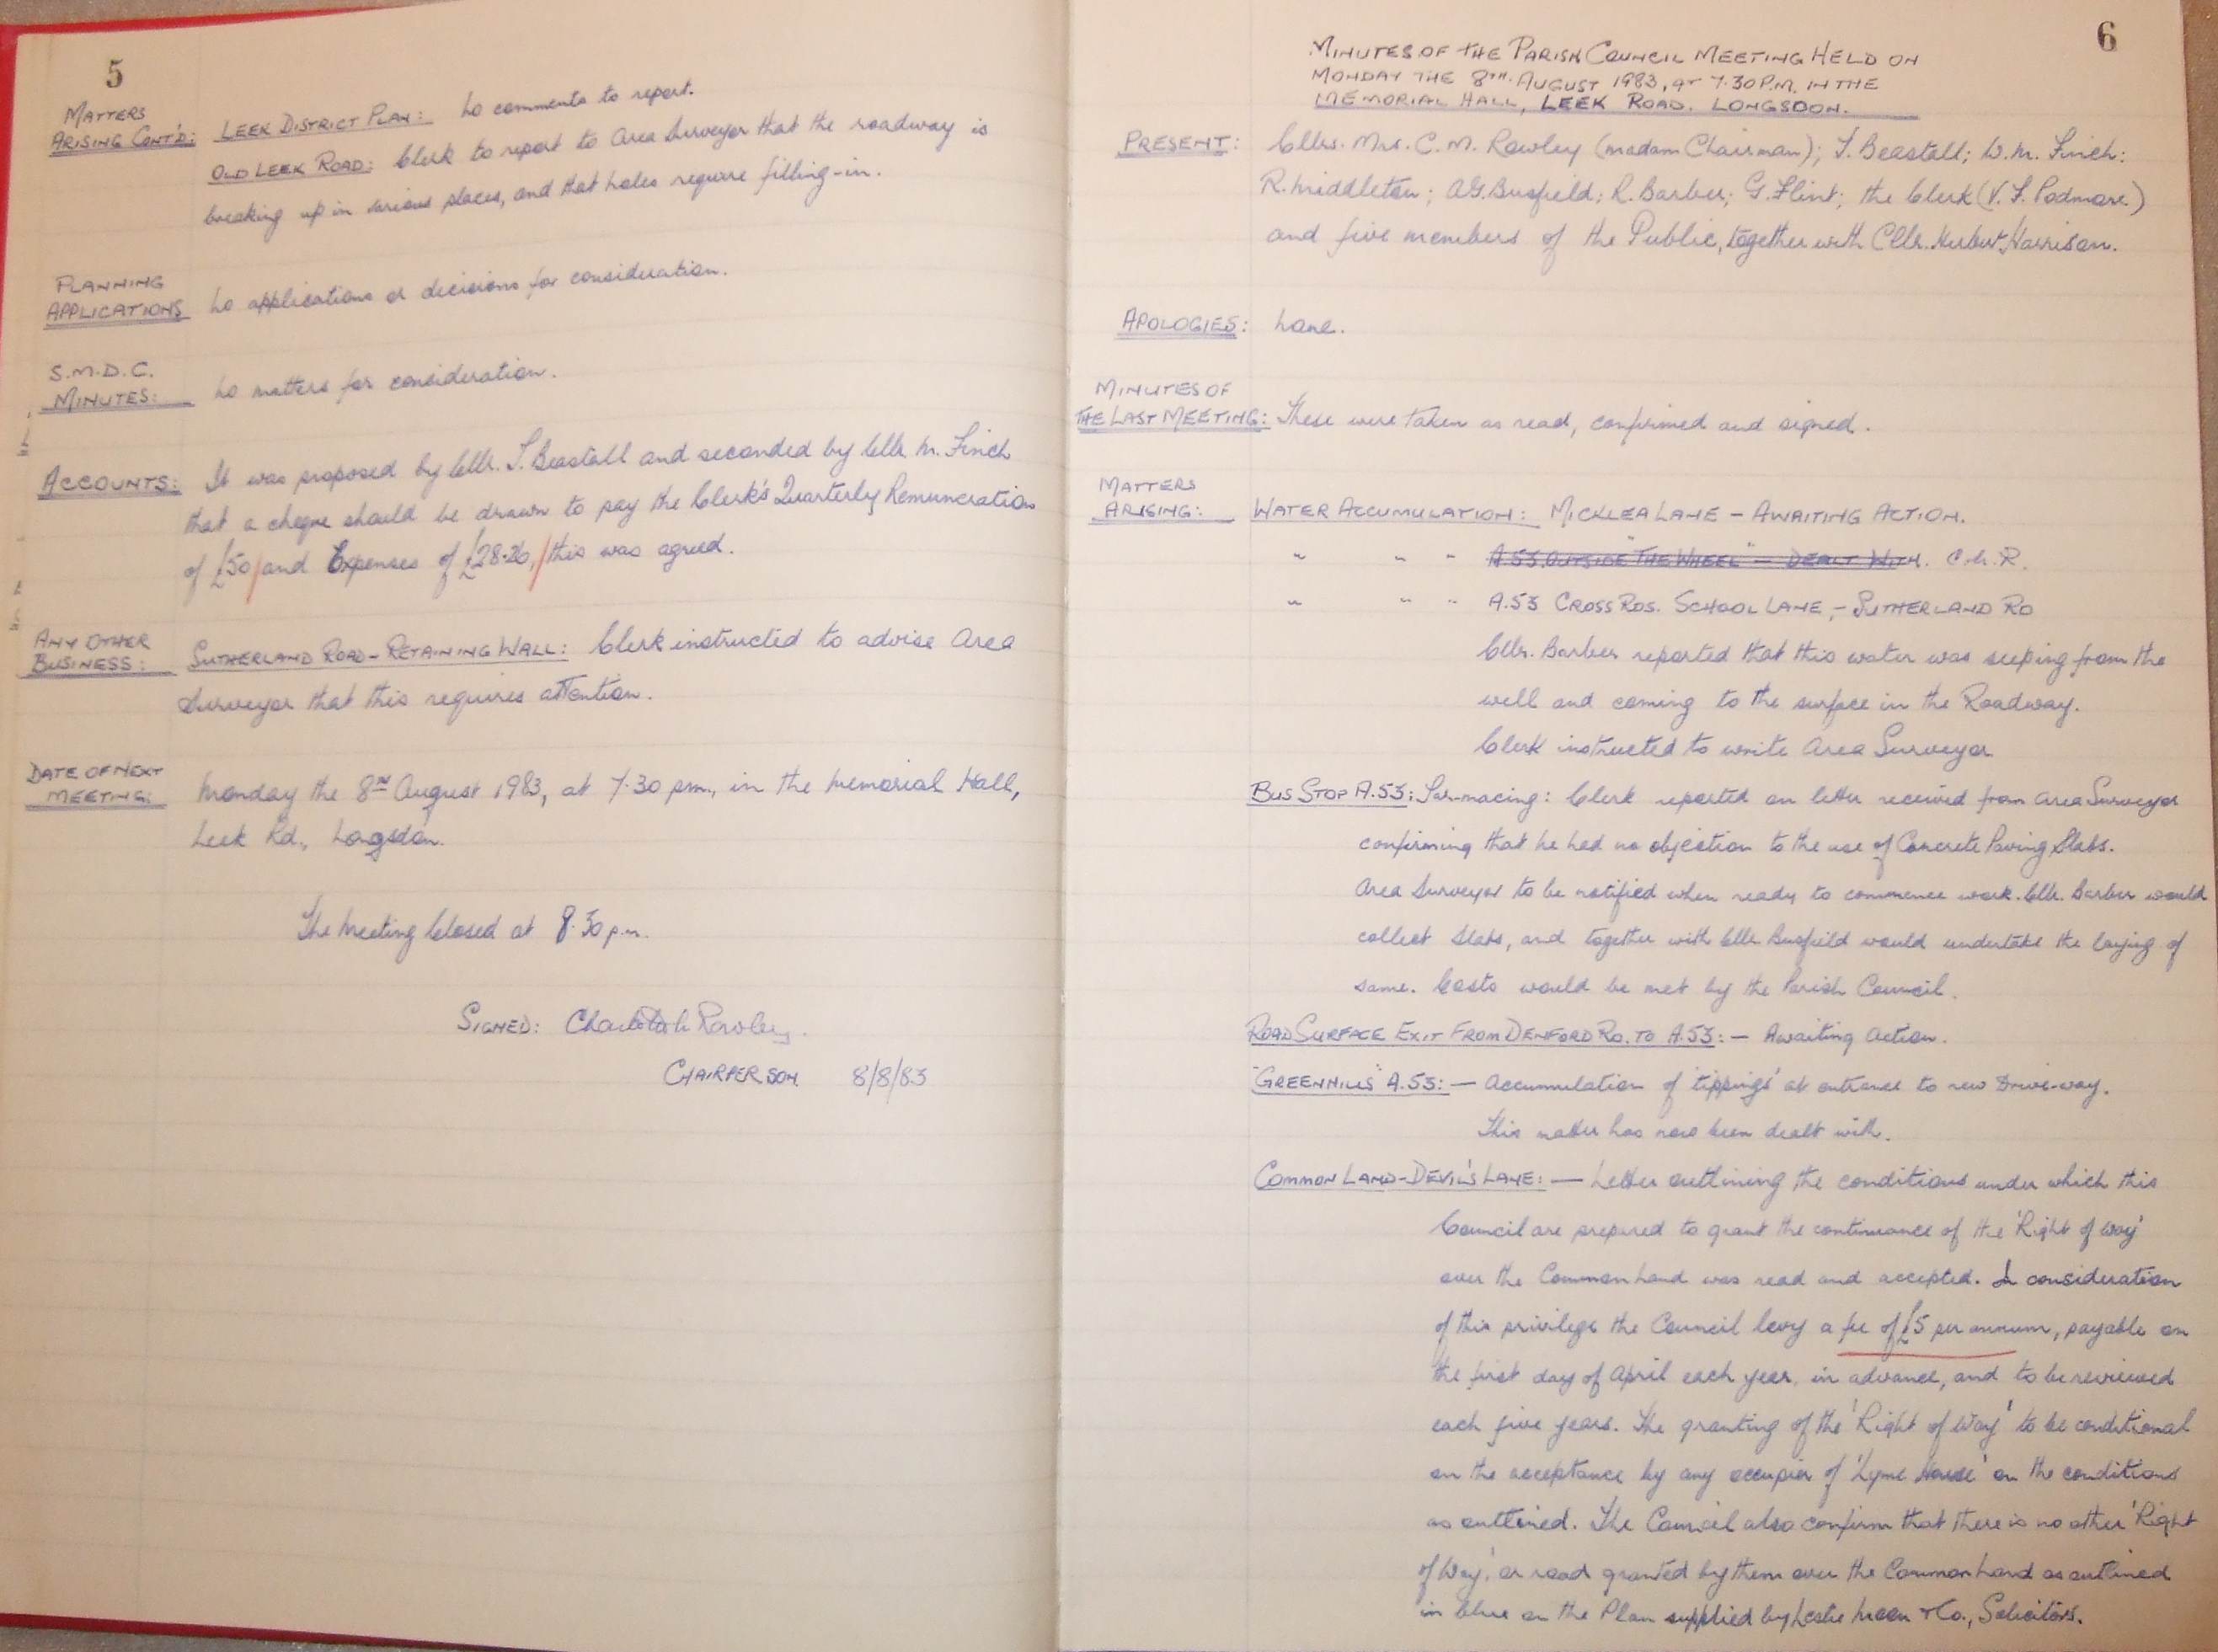 5
MATTERS
ARISING CONT'D: LEEK DISTRICT PLAN: No comments to report.
OLD LEEK ROAD: Clerk to report to Area Surveyor that the roadway is
breaking up in various places, and that holes require filling-in.
PLANNING
APPLICATIONS No applications or decisions for consideration.
S.M.D.C.
MINUTES: No matters for consideration.
ACCOUNTS: It was proposed by Cllr. T. Beastall and seconded by Cllr. M. Finch
that a cheque should be drawn to pay the Clerk's Quarterly Remuneration
of £50/and Expenses of £28.26,/this was agreed.
ANY OTHER
BUSINESS: SUTHERLAND ROAD - RETAINING WALL: Clerk instructed to advise Area
Surveyor that this requires attention.
DATE OF NEXT
MEETING: Monday the 8TH August 1983, at 7.30 p.m., in the Memorial Hall,
Leek Rd., Longsdon.
The Meeting Closed at 8.30 p.m.
SIGNED: Rowley.
CHAIRPERSON. 8/8/83
6
MINUTES OF THE PARISH COUNCIL MEETING HELD ON
MONDAY THE 8TH. AUGUST 1983, AT 7.30 P.M. IN THE
MEMORIAL HALL, LEEK ROAD. LONGSDON.
PRESENT: Cllrs. Mrs. C. M. Rowley (Madam Chairman); T. Beastall; W. M. Finch:
R. Middleton; A.G. Busfield; R. Barber; G. Flint; the Clerk (V. F. Podmore.)
and five members of the Public, together with Cllr. Herbert Harrison.
APOLOGIES: None.
MINUTES OF
THE LAST MEETING: These were taken as read, confirmed and signed.
MATTERS
ARISING: WATER ACCUMULATION: MICKLEA LANE - AWAITING ACTION.
" " " A.53 OUTSIDE "THE WHEEL" - DEALT WITH. C.M.R.
" " " A.53 CROSS RDS. SCHOOL LANE, - SUTHERLAND RD
Cllr. Barber reported that this water was seeping from the
well and coming to the surface in the Roadway.
Clerk instructed to write Area Surveyor
BUS STOP A.53: Tar-macing: Clerk reported on letter received from Area Surveyor
confirming that he had no objection to the use of Concrete Paving Slabs.
Area Surveyor to be notified when ready to commence work. Cllr. Barber would
collect Slabs, and together with Cllr. Busfield would undertake the laying of
same. Costs would be met by the Parish Council.
ROAD SURFACE EXIT FROM DENFORD RD. TO A.53: - Awaiting Action.
"GREENHILLS" A.53: - Accumulation of 'tippings' at entrance to new Drive-way.
This matter has now been dealt with.
COMMON LAND - DEVIL'S LANE: - Letter outlining the conditions under which this
Council are prepared to grant the continuance of the 'Right of Way'
over the Common Land was read and accepted. In consideration
of this privilege the Council levy a fee of £5 per annum, payable on
the first day of April each year, in advance, and to be reviewed
each five years. The granting of the 'Right of Way' to be conditional
on the acceptance by any occupier of 'Lyme House' on the conditions
as outlined. The Council also confirm that there is no other 'Right
of Way', or road granted by them over the Common Land as outlined
in blue on the Plan supplied by Leslie Moon & Co., Solicitors.